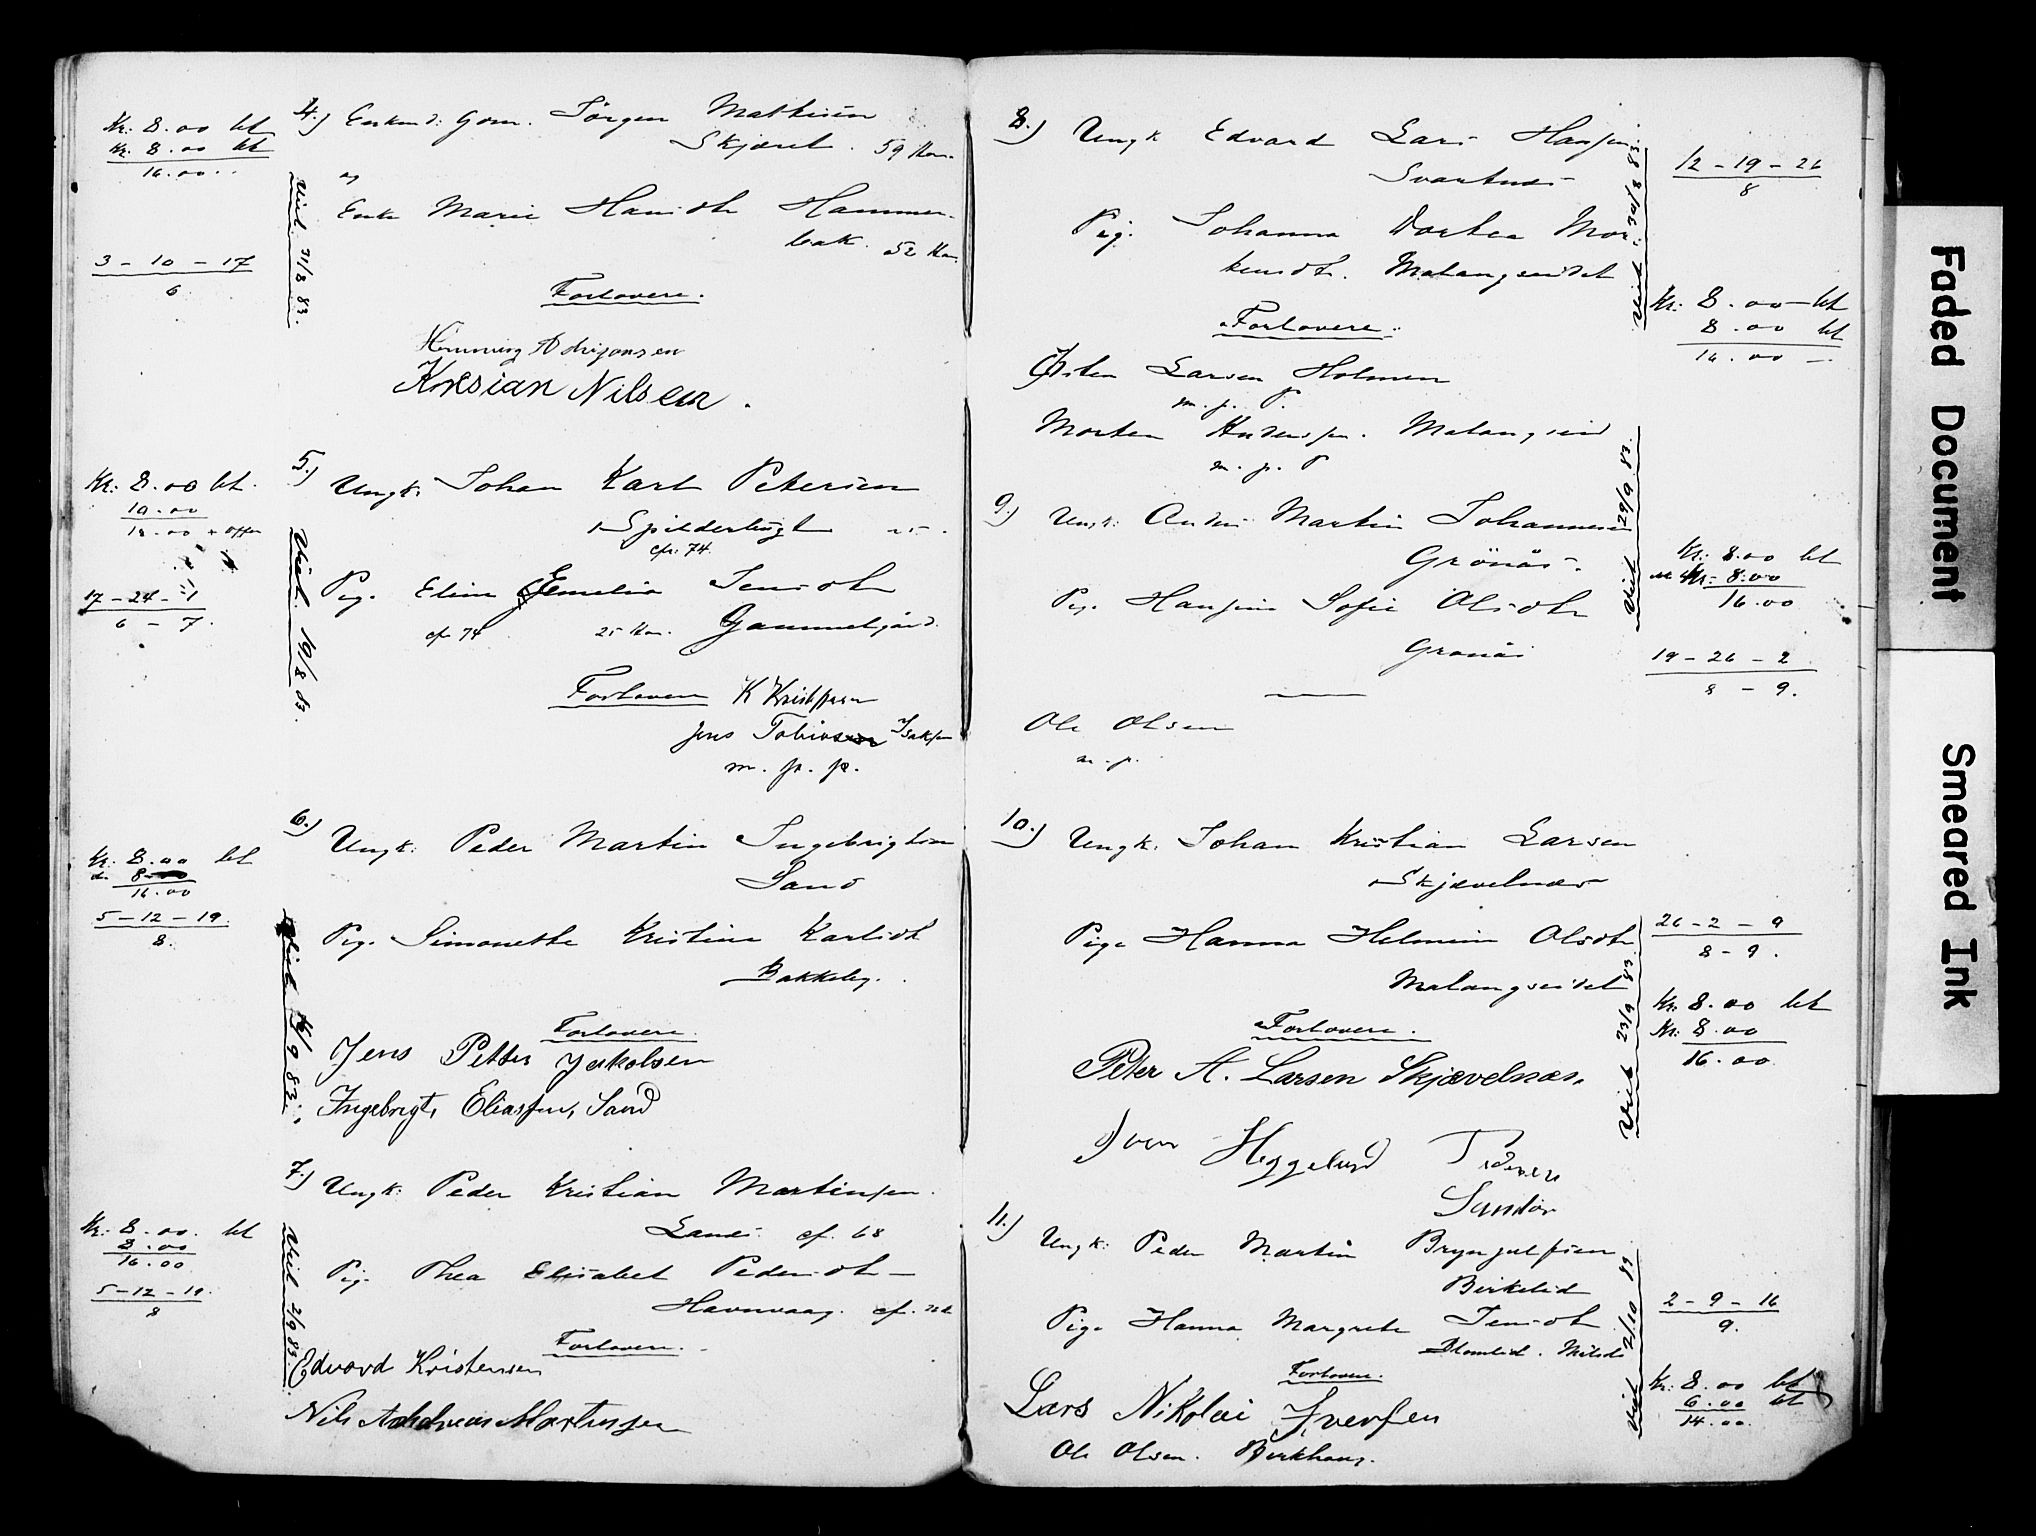 4.) Enkemd: Gom. Jörgen Mathisen
Skjæret. 59 Aar.
og
Enke Marie Hansdtr Hammer-
bak. 52 Aar.
Forlovere.
Henning Adrijansen
Kresian Nilsen.
Kr: 8.00 bt
Kr. 8.00 bt
16.00
3 - 10 - 17
6
Viet 31/8 83.
5.) Ungk: Johan Karl Petersen
Spilderbugt
cfr. 74.
Pig. Eline Emelia Jensdtr
cf 74 25 Aar. Gammelgård.
Forlovere K Kristjansen
Jens Tobiassen Isaksen
m. p. p.
Kr: 8.00 bt.
10.00
18.00 + offer
17 - 24 - 1
6 - 7.
Viet. 19/8 83.
6.) Ungk: Peder Martin Ingebrigtsen
Sand
Pig. Simonette Kristine Karlsdt
Bakkeby.
Forlovere.
Jens Petter Jakobsen
Ingebrigt Eliassen, Sand
Kr: 8.00 bt
do 8.00
16.00
5 - 12 - 19.
8.
Viet 16/9 83.
7.) Ungk: Peder Kristian Martinsen.
Lanes. cf. 68
Pig. Thea Elisabet Pedersdtr
Havnvaag. cf.
Forlovere.
Edvard Kristensen
Nils Andreas Martinsen
Kr: 8.00. bt
8.00
16.00
5 - 12 - 19.
8
Viet 2/9 83.
8.) Ungk Edvard Lars Hansen
Svartnes
Pig. Johanna Dortea Mor-
tensdtr. Malangseidet
Forlovere:
Østen Larsen Holmen
m. p. P.
Morten Anderssen. Malangseid
m. p. P
12 - 19 - 26
8
Kr: 8.00 bt
8.00 bt
16.00
Viet 30/8 83.
9.) Ungk: Anders Martin Johannesen
Grönås.
Pig. Hansine Sofie Olsdtr
Grönås
Ole Olsen
m. p.
Kr: 8.00 bt
Kr: 8.00
16.00
19 - 26 - 2
8 - 9.
Viet 29/9 83.
10.) Ungk. Johan Kristian Larsen
Skjævelnæs
Pige Hanna Helmine Olsdtr
Malangseidet
Forlovere.
Peter A. Larsen Skjævelnæs.
Iver Heggelund
Sandør
26 - 2 - 9
8 - 9.
Kr: 8.00 bt
Kr: 8.00
16.00
Viet 23/9 83.
11.) Ungk: Peder Martin Brynjulfsen
Birkelid
Pige Hanna Margrete Jensdtr
Blomlid.
Forlovere.
Lars Nikolai Iversen
Ole Olsen. Berkhaug.
2 - 9 - 16
9.
Kr: 8.00 bt
6.00 bt
14.00.
Viet 2/10 83
Faded Document
Smeared Ink